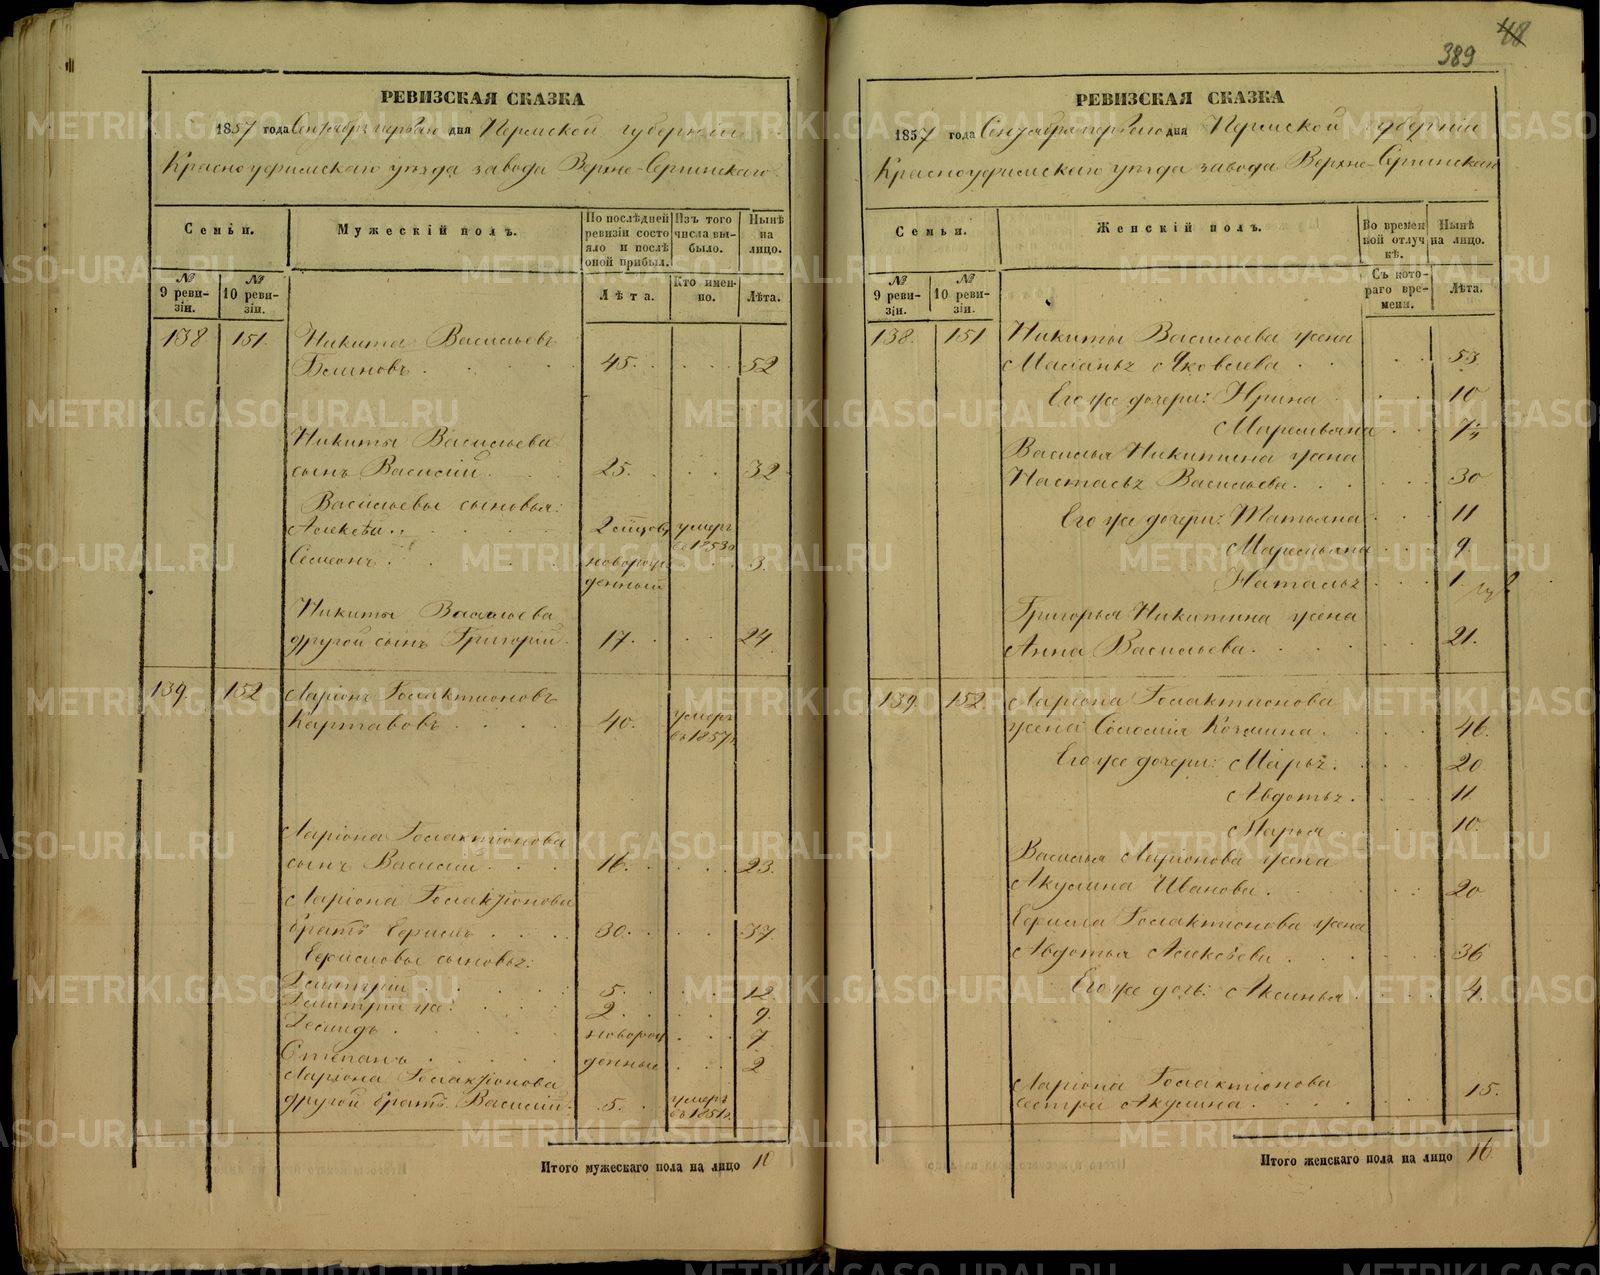 РЕВИЗСКАЯ СКАЗКА
1857 года Сентября перваго дня Пермской губернiи
Красноуфимскаго уѣзда завода Верхне-Сергинскаго
Семьи.
Мужескiй полъ.
По послѣдней ревизiи состояло и послѣ оной прибыл.
Изъ того числа выбыло.
Нынѣ на лицо.
№ 9 ревизiи.
№ 10 ревизiи.
Лѣта.
Кто именно.
Лѣта.
138 151. Никита Васильевъ
Блиновъ 45. 52
Никиты Васильева
сынъ Василiй 25. 32
Васильевы сыновья:
Алексѣй 2 умеръ въ 1853
Семеонъ новорожденный 3.
Никиты Васильева
другой сынъ Григорiй 17. 24
139. 152 Ларiонъ Галактiоновъ
Картавовъ 40. умеръ въ 1857
Ларiона Галактiонова
сынъ Василiй 16. 23.
Ларiона Галактiонова
братъ 30. 37.
сыновья:
Дмитрiй 5. 12.
Дмитрiй же 2. 9.
новорож 7
Степанъ денные 2
Ларiона Галактiонова
другой братъ Василiй 5. умеръ въ 1851
Итого мужескаго пола на лицо 10
48
389
РЕВИЗСКАЯ СКАЗКА
1857 года Сентября перваго дня Пермской губернiи
Красноуфимскаго уѣзда завода Верхне-Сергинскаго
Семьи.
Женскiй полъ.
Во временной отлучкѣ.
Нынѣ на лицо.
№ 9 ревизiи.
№ 10 ревизiи.
Съ котораго времени.
Лѣта.
138. 151 Никиты Васильева жена
Маланья Яковлева 53
Его же дочери: Ирина 10
Маремьяна
Василья Никитина жена
Настасья Васильева. 30
Его же дочери: Татьяна 11
Маремьяна 9.
Наталья 1
Григорья Никитина жена
Анна Васильева. 21.
139. 152 Ларiона Галактiонова
жена Соломiя Козмина. 46.
Его же дочери: Марья. 20
Авдотья. 11
Марья 10.
Василья Ларiонова жена
Акулина Иванова. 20
Галактiонова жена
Авдотья Алексѣева 36
Его же дочь: Аксинья 4.
Ларiона Галактiонова
сестра Акулина. 15.
Итого женскаго пола на лицо 16.
METRIKI.GASO-URAL.RU